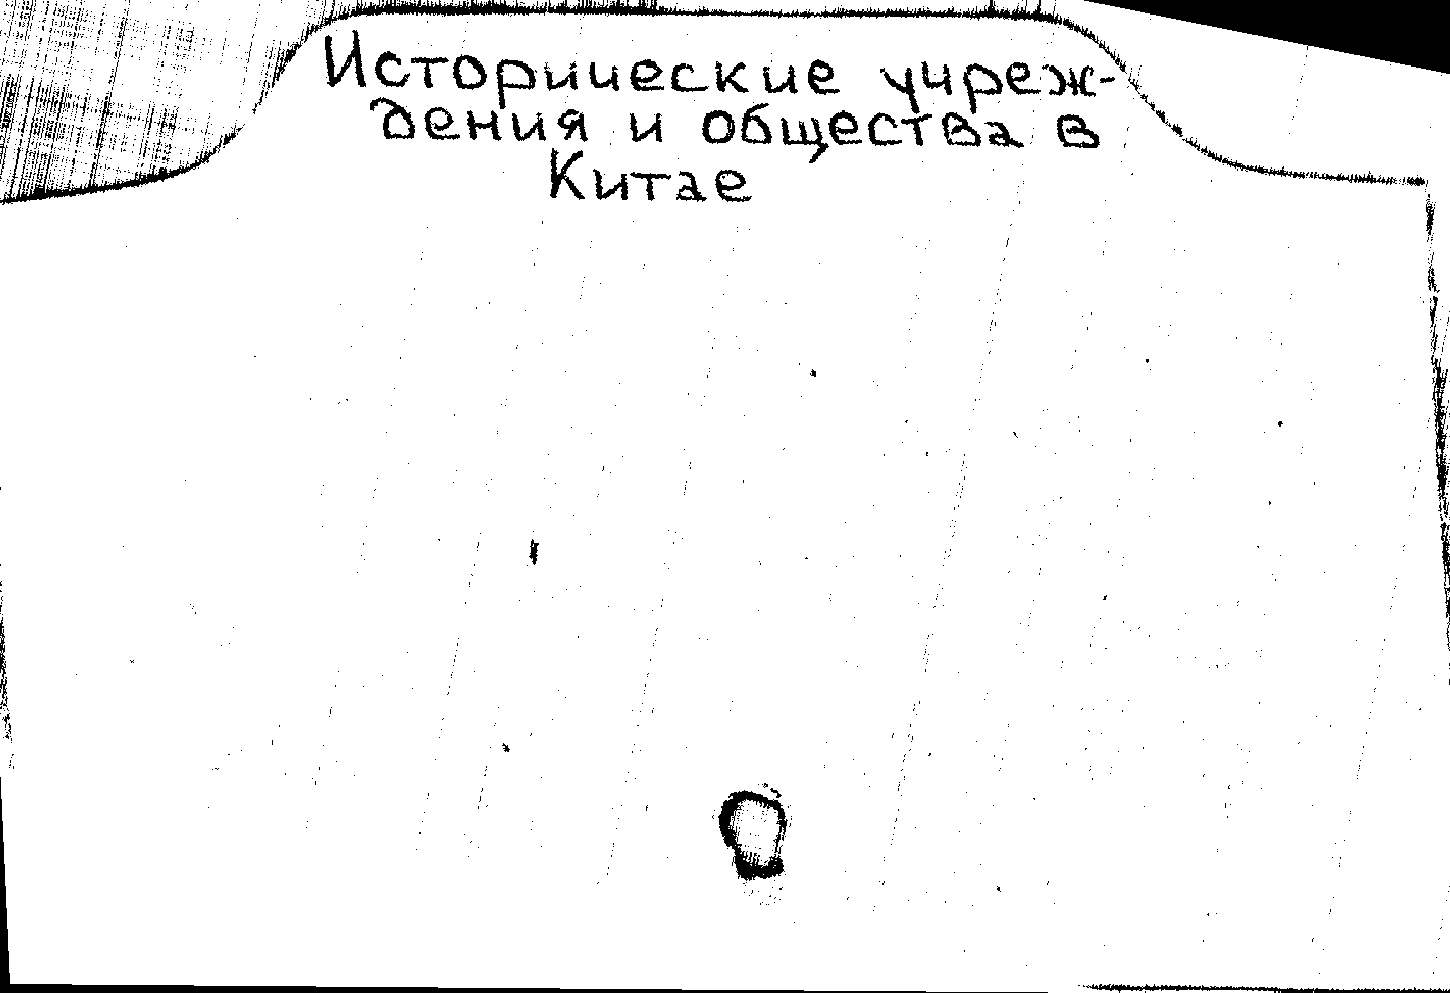 Исторические учреж-
дения и общества в
Китае